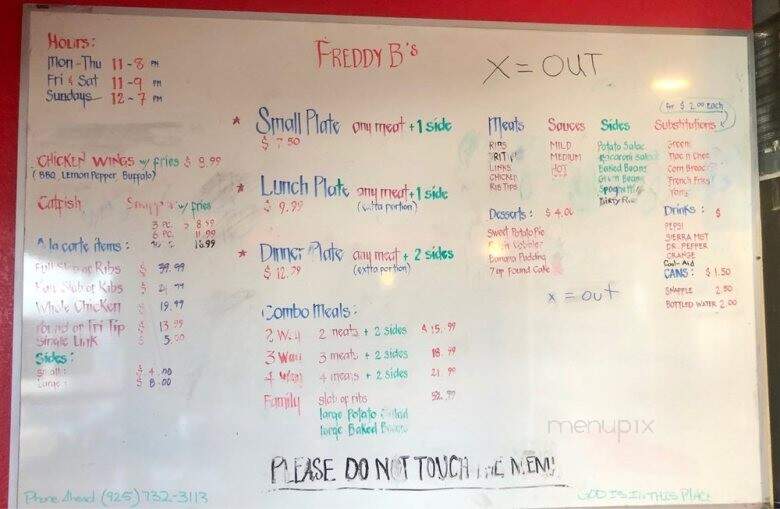 Hours:
Mon-Thu 11-8 PM
Fri & Sat 11-9 PM
Sundays 12-7 PM
FREDDY B's
X = OUT
CHICKEN WINGS w/ fries $ 8.99
(BBQ, Lemon Pepper, Buffalo)
Catfish w/ fries
3 PC. 8.59
6 PC. 11.99
16.99
A la carte items:
Full Slab of Ribs $ 39.99
Slab of Ribs $ 21.99
Whole Chicken $ 19.99
Pound of Tri Tip $ 13.99
Single Link $ 5.00
Sides:
Small: $ 4.00
Large: $ 8.00
* Small Plate any meat + 1 side
$ 7.50
* Lunch Plate any meat + 1 side
$ 9.99 (extra portion)
* Dinner Plate any meat + 2 sides
$ 12.79 (extra portion)
Combo Meals:
2 Way 2 meats + 2 sides $ 15.99
3 Way 3 meats + 2 sides 18.99
4 Way 4 meats + 2 sides 21.99
Family slab of ribs
large Potato Salad
large Baked Beans
Meats
RIBS
TRI TIP
LINKS
CHICKEN
RIB TIPS
Sauces
MILD
MEDIUM
HOT
Sides
Potato Salad
Macaroni Salad
Baked Beans
Green Beans
Spaghetti
Dirty Rice
(for $ 2.00 each)
Substitutions
Greens
Mac n Chee
Corn Bread
French Fries
Yams
Desserts: $ 4.00
Sweet Potato Pie
Cobbler
Banana Pudding
7up Pound Cake
x = out
Drinks: $
PEPSI
SIERRA MIST
DR. PEPPER
ORANGE
Cool-Aid
CANS: $ 1.50
SNAPPLE 2.50
BOTTLED WATER 2.00
menupix
PLEASE DO NOT TOUCH THE MENU
Phone Ahead (925) 732-3113
GOD IS IN THIS PLACE